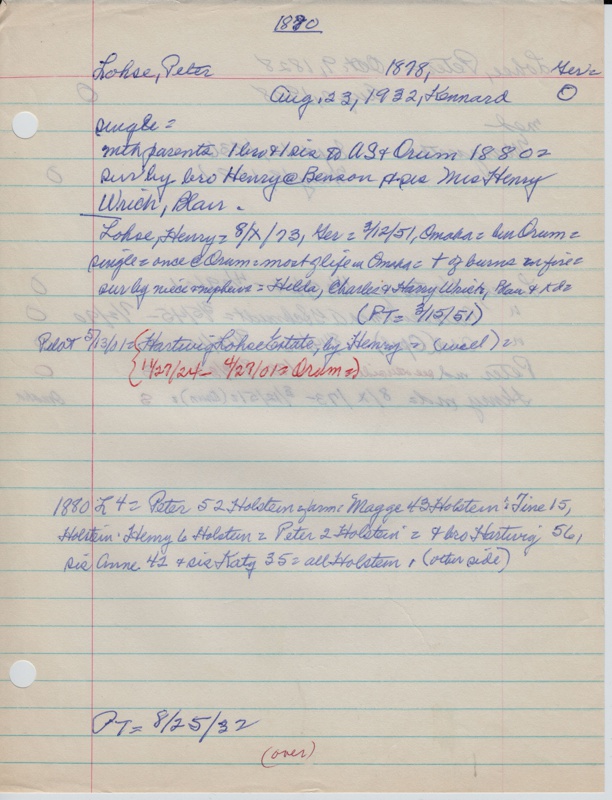 1880
Lohse, Peter 1878, Ger =
Aug. 23, 1932, Kennard O
single =
with parents 1 bro & 1 sis to AS & Orum 1880 =
sur by bro Henry @ Benson & sis Mrs Henry
Wrich, Blair.
Lohse, Henry = 8/X/73, Ger = 3/12/51, Omaha = bur Orum =
single = once @ Orum = most of life in Omaha = + of burns in fire =
sur by niece nephews = Hilda, Charlie & Harry Wrich, Blair &
(PT = 3/15/51)
Pilot 5/13/01 = (Hartwig Lohse Estate, by Henry =
(11/27/24 - 4/27/01 = Orum =)
1880 L 4 = Peter 52 Holstein farm: Magge 43 Holstein: Tine 15,
Holstein. Henry 6 Holstein = Peter 2 Holstein = & bro Hartwig 56,
sis Anne 42 & sis Katy 35 = all Holstein. (other side)
PT = 8/25/32
(over)